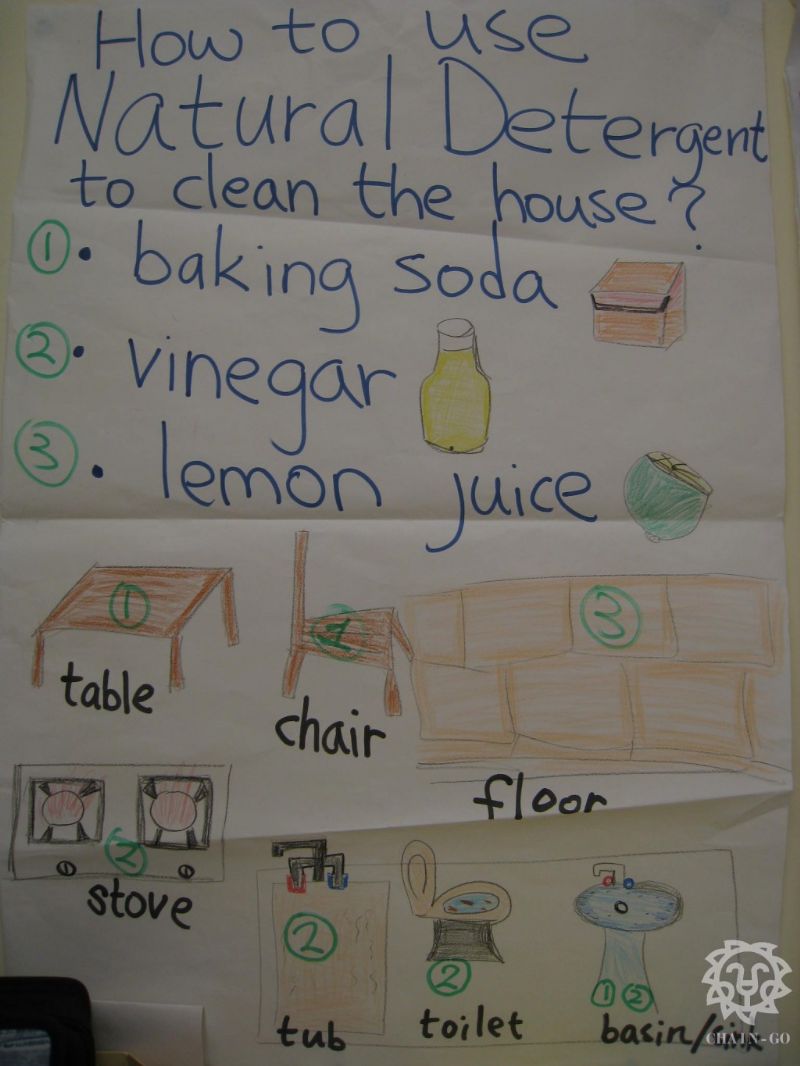 How to use
Natural Detergent
to clean the house?
① • baking soda
② • vinegar
③ • lemon juice
①
③
table
chair
floor
②
stove
②
②
① ②
tub
toilet
basin/sink
CHAIN-GO